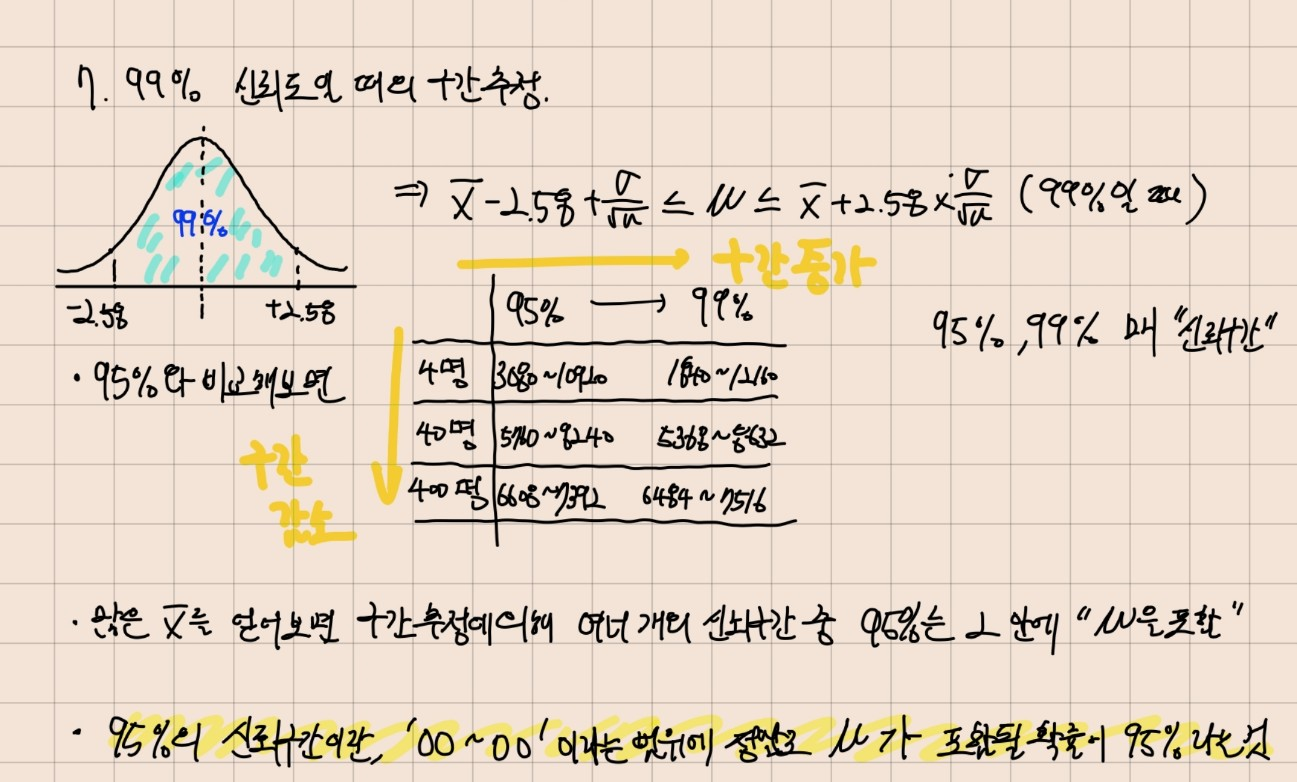 7. 99% 신뢰도일 때의 구간추정.
⇒ X̄ - 2.58 + σ/√n ≤ μ ≤ X̄ + 2.58 × σ/√n (99%일 때)
99%
-2.58 +2.58
구간증가
95% → 99%
95%, 99% 때 "신뢰구간"
· 95%와 비교해보면
4명 3080~10920 1840~12160
40명 5760~8240 5368~8632
400명 6608~7392 6484~7516
구간
감소
· 많은 X̄를 얻어보면 구간추정에의해 여러 개의 신뢰구간 중 95%는 그 안에 "μ을 포함"
· 95%의 신뢰구간이란, '00~00'이라는 범위에 정말로 μ가 포함될 확률이 95%라는 것